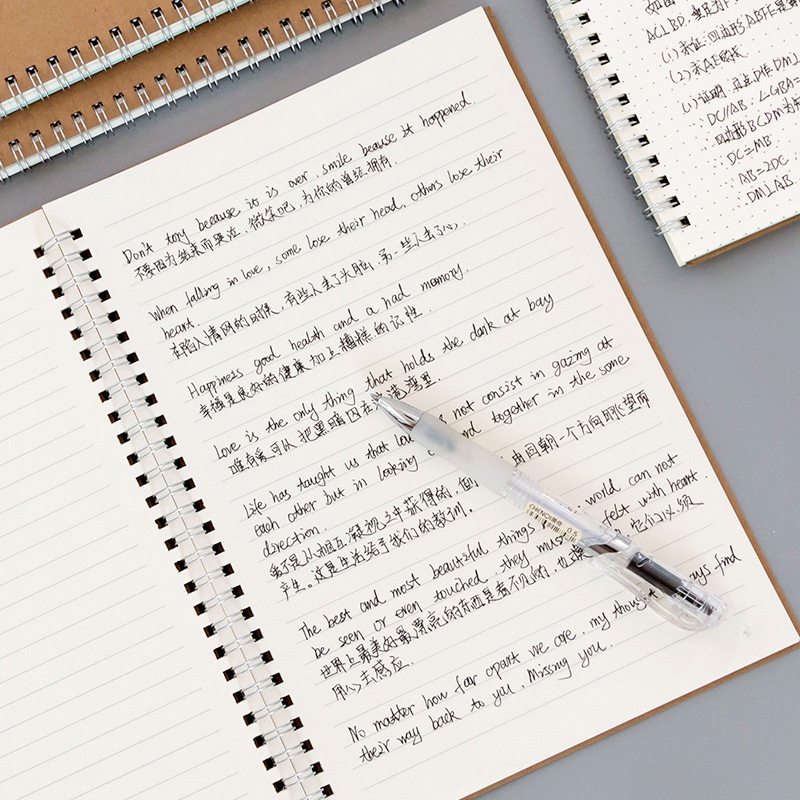 Don't try because it is over, smile because it happened.
不要因为结束而哭泣，微笑吧，为你的曾经拥有．
When falling in love, some lose their head, others lose their
heart.
在陷入情网的时候，有些人丢了头脑，另一些人丢了心．
Happiness good health and a had memory.
幸福是良好的健康加上糟糕的记性．
Love is the only thing that holds the dank at bay
唯有爱可以把黑暗囚在港湾里．
Life has taught us that not consist in gazing at
each other but in looking together in the some
direction.
爱不是从相互凝视之中获得的，但 由同朝一个方向眺望而
产生。这是生活给予我们的教训。
The best and most beautiful things world can not
be seen or even touched, they must felt with heart.
世界上最美好最漂亮的东西是看不见的，也 它们必须
用心去感应．
No matter how far apart we are, my thought find
their way back to you, Missing you.
CHENQI 0.5
AC⊥BD,
(1) 求证：四边形ABFE是
(2) 求AE的长
(1) 证明：
DC//AB
四边形BCDM为
DC=MB
AB=2DC
DM⊥AB